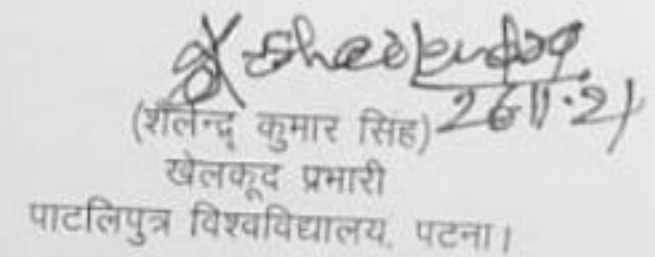 Shailendra
26.11.21
(शैलेन्द्र कुमार सिंह)
खेलकूद प्रभारी
पाटलिपुत्र विश्वविद्यालय, पटना।